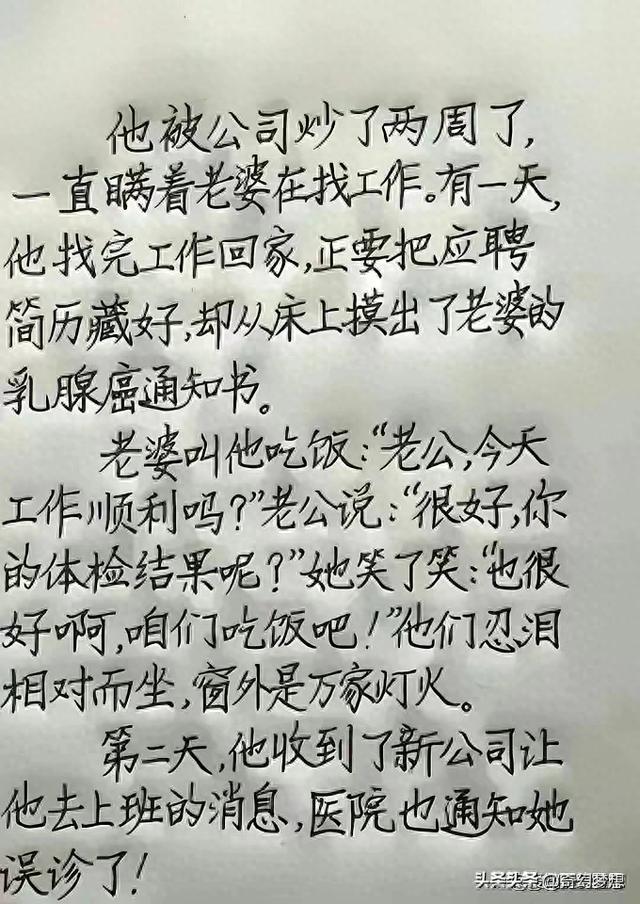 他被公司炒了两周了,
一直瞒着老婆在找工作。有一天,
他找完工作回家,正要把应聘
简历藏好,却从床上摸出了老婆的
乳腺癌通知书。
老婆叫他吃饭:“老公,今天
工作顺利吗?”老公说:“很好,你
的体检结果呢?”她笑了笑:“也很
好啊,咱们吃饭吧!”他们忍泪
相对而坐,窗外是万家灯火。
第二天,他收到了新公司让
他去上班的消息,医院也通知她
误诊了!
头条头条 @奇幻梦想